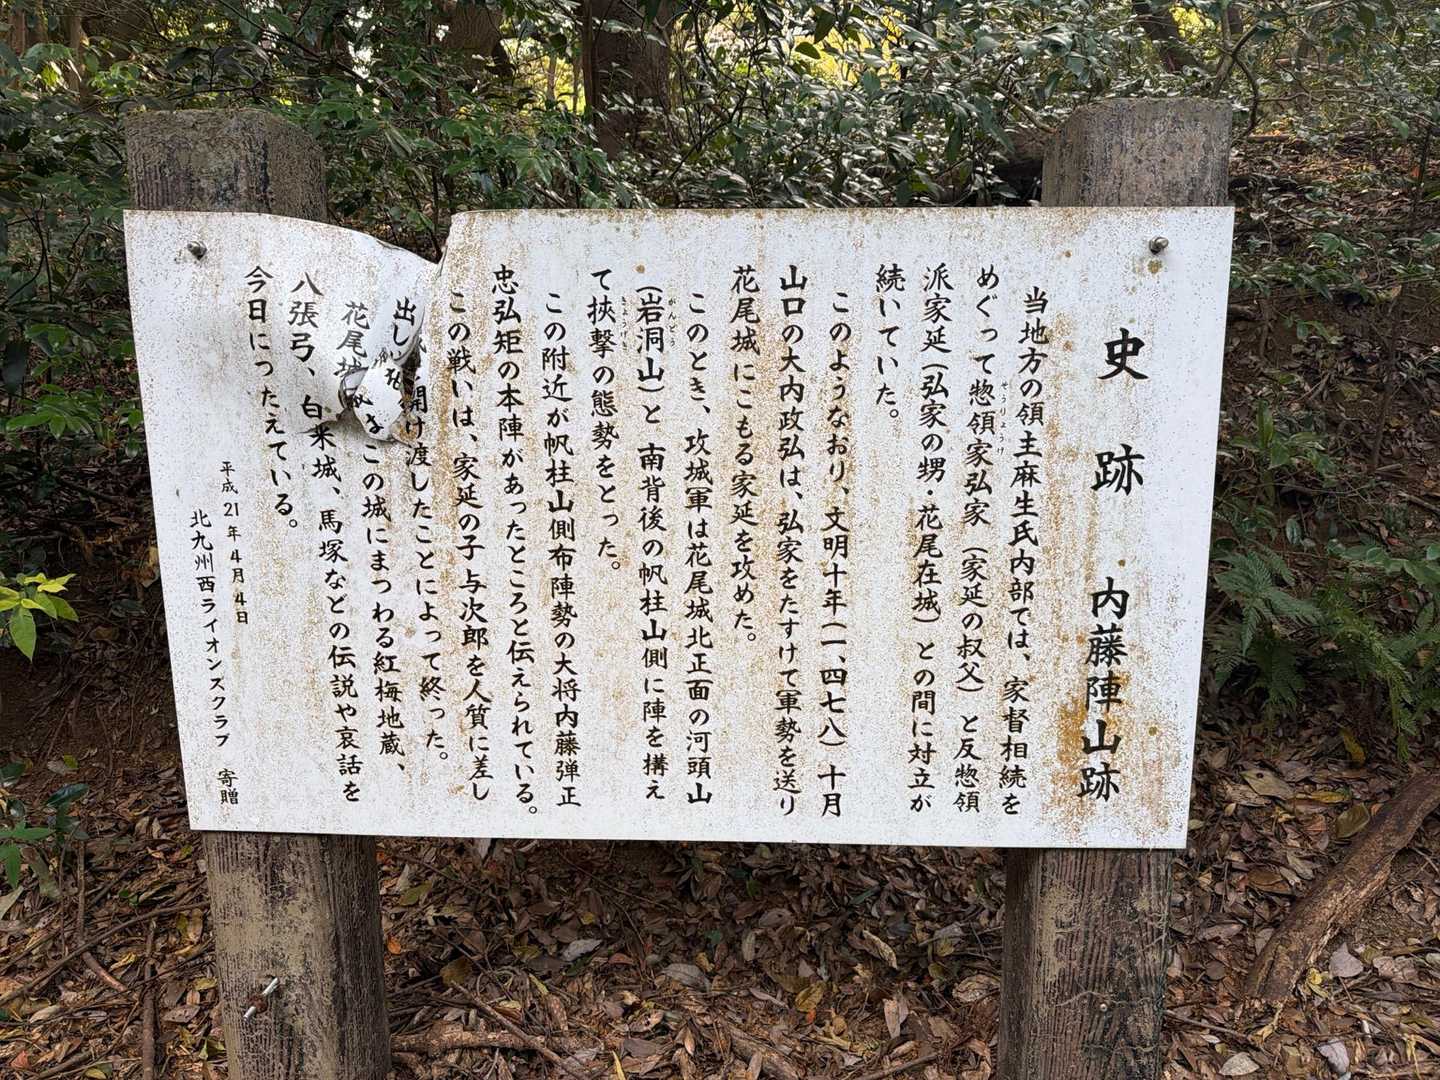 史跡 内藤陣山跡
当地方の領主麻生氏内部では、家督相続を
めぐって惣領家弘家（家延の叔父）と反惣領
そうりょうけ
派家延（弘家の甥・花尾在城）との間に対立が
続いていた。
このようなおり、文明十年（一、四七八）十月
山口の大内政弘は、弘家をたすけて軍勢を送り
花尾城にこもる家延を攻めた。
このとき、攻城軍は花尾城北正面の河頭山
（岩洞山）と南背後の帆柱山側に陣を構え
がんどう
て挟撃の態勢をとった。
きょうげき
この附近が帆柱山側布陣勢の大将内藤弾正
忠弘矩の本陣があったところと伝えられている。
この戦いは、家延の子与次郎を人質に差し
出し 開け渡したことによって終った。
花尾城 この城にまつわる紅梅地蔵、
八張弓、白米城、馬塚などの伝説や哀話を
今日につたえている。
平成21年4月4日
北九州西ライオンズクラブ 寄贈